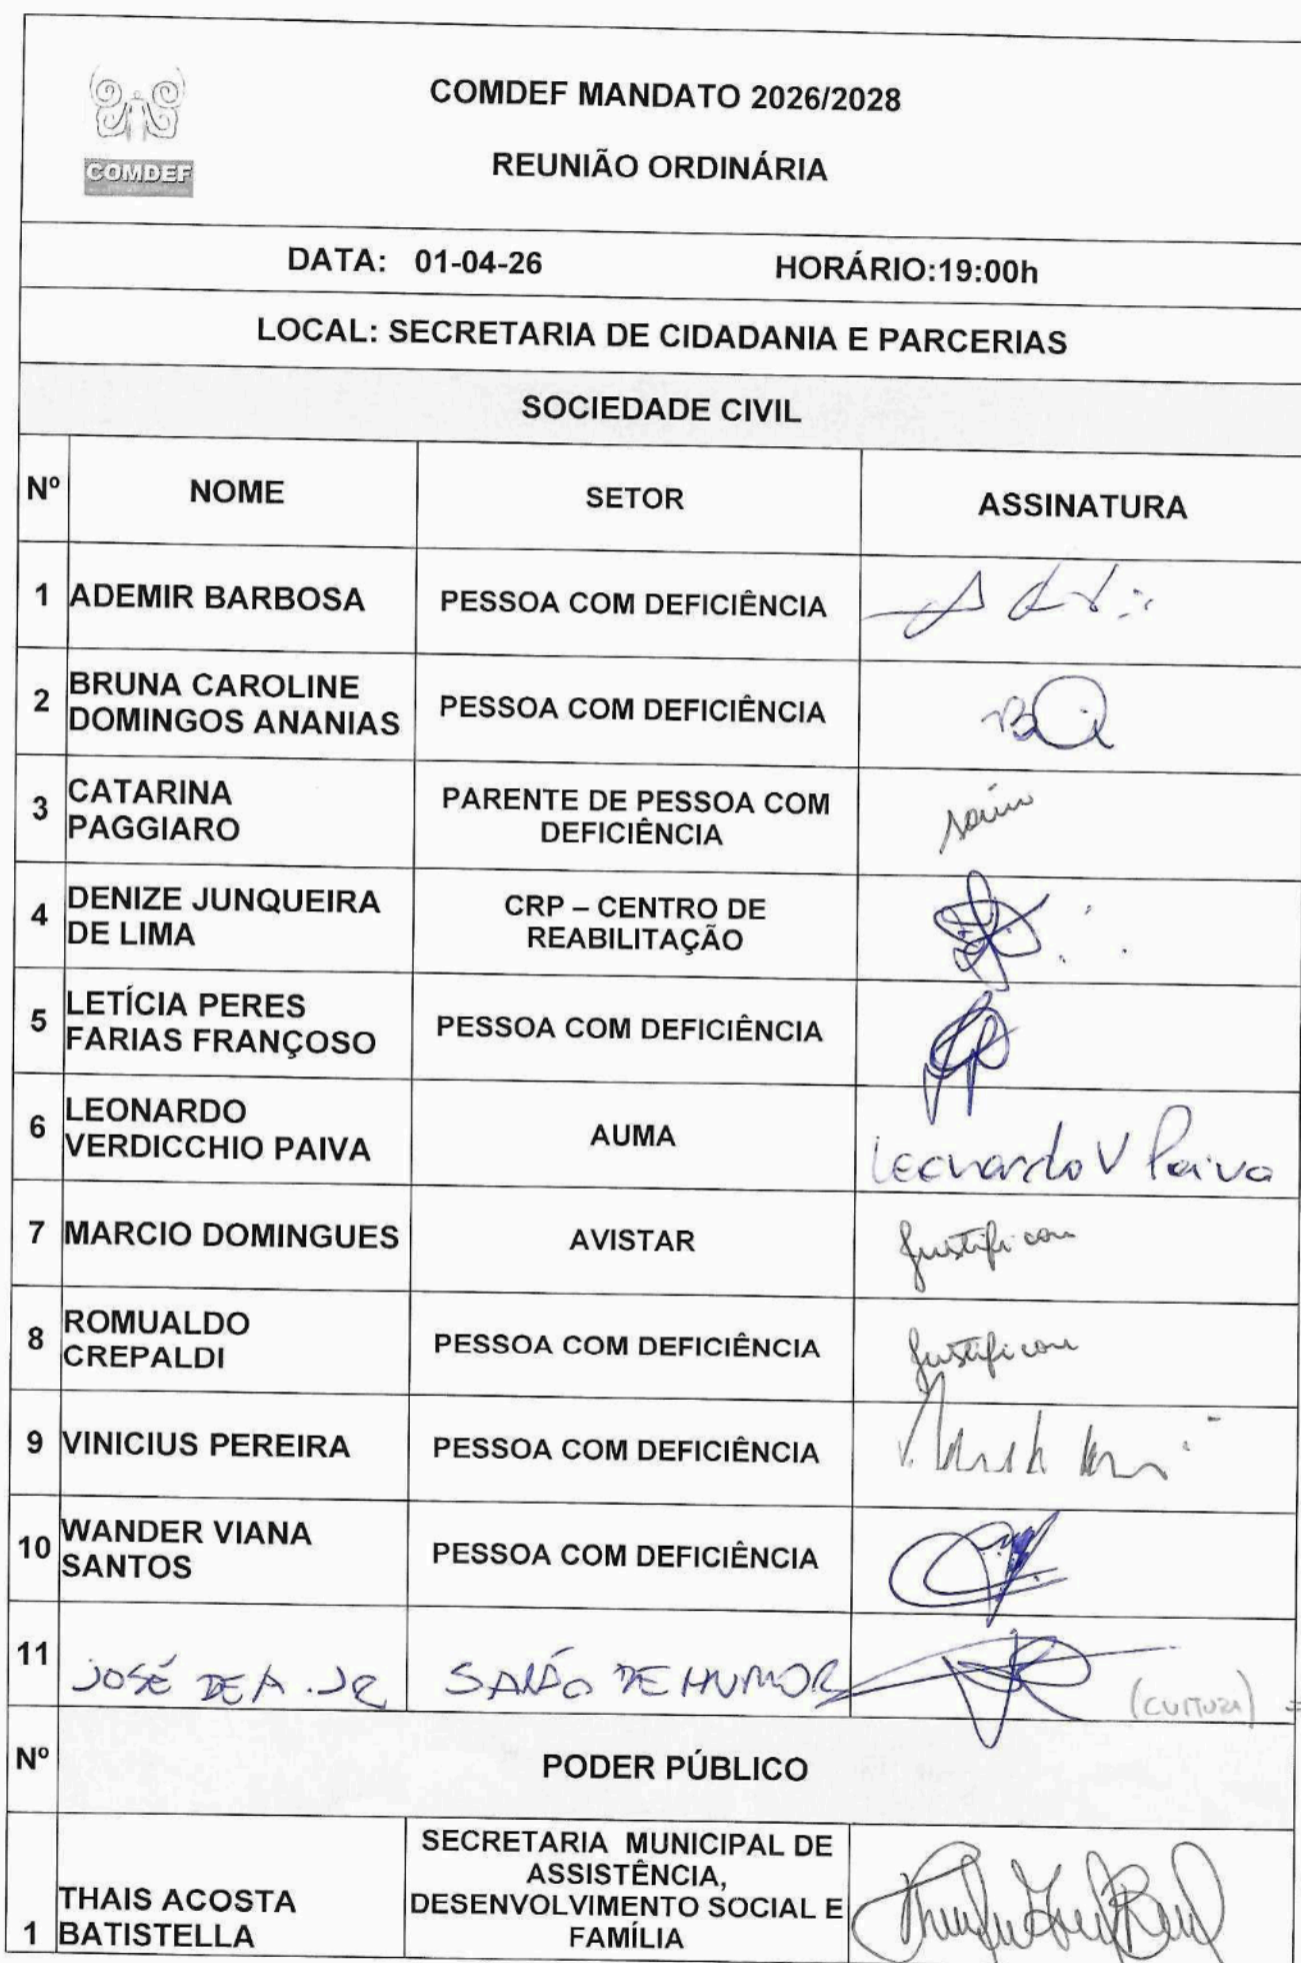 COMDEF MANDATO 2026/2028
COMDEF
REUNIÃO ORDINÁRIA
DATA: 01-04-26 HORÁRIO:19:00h
LOCAL: SECRETARIA DE CIDADANIA E PARCERIAS
SOCIEDADE CIVIL
Nº NOME SETOR ASSINATURA
1 ADEMIR BARBOSA PESSOA COM DEFICIÊNCIA
2 BRUNA CAROLINE
DOMINGOS ANANIAS PESSOA COM DEFICIÊNCIA
3 CATARINA
PAGGIARO PARENTE DE PESSOA COM
DEFICIÊNCIA
4 DENIZE JUNQUEIRA
DE LIMA CRP – CENTRO DE
REABILITAÇÃO
5 LETÍCIA PERES
FARIAS FRANÇOSO PESSOA COM DEFICIÊNCIA
6 LEONARDO
VERDICCHIO PAIVA AUMA Leonardo V Paiva
7 MARCIO DOMINGUES AVISTAR Justificou
8 ROMUALDO
CREPALDI PESSOA COM DEFICIÊNCIA Justificou
9 VINICIUS PEREIRA PESSOA COM DEFICIÊNCIA
10 WANDER VIANA
SANTOS PESSOA COM DEFICIÊNCIA
11 JOSÉ DE A. JR SALÃO DE HUMOR (CULTURA)
Nº PODER PÚBLICO
1 THAIS ACOSTA
BATISTELLA SECRETARIA MUNICIPAL DE
ASSISTÊNCIA,
DESENVOLVIMENTO SOCIAL E
FAMÍLIA